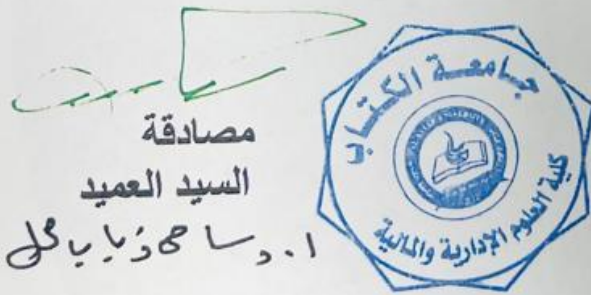 مصادقة
السيد العميد
ا.د. سامي ذياب محل
جامعة الكتاب
كلية العلوم الإدارية والمالية